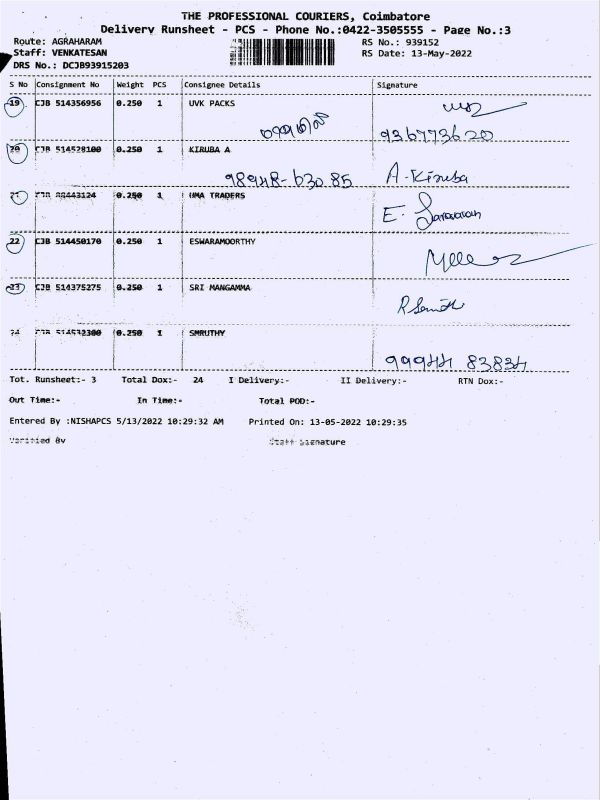 THE PROFESSIONAL COURIERS, Coimbatore
Delivery Runsheet - PCS - Phone No.:0422-3505555 - Page No.:3
Route: AGRAHARAM RS No.: 939152
Staff: VENKATESAN RS Date: 13-May-2022
DRS No.: DCJB93915203
S No Consignment No Weight PCS Consignee Details Signature
19 CJB 514356956 0.250 1 UVK PACKS
936773620
20 CJB 514528100 0.250 1 KIRUBA A
98948-63085 A. Kiruba
CJB 0.250 1 UMA TRADERS
E. Saravanan
22 CJB 514450170 0.250 1 ESWARAMOORTHY
23 CJB 514375275 0.250 1 SRI MANGAMMA
24 CJB 514532300 0.250 1 SMRUTHY
99944 83834
Tot. Runsheet:- 3 Total Dox:- 24 I Delivery:- II Delivery:- RTN Dox:-
Out Time:- In Time:- Total POD:-
Entered By :NISHAPCS 5/13/2022 10:29:32 AM Printed On: 13-05-2022 10:29:35
Verified By Staff Signature